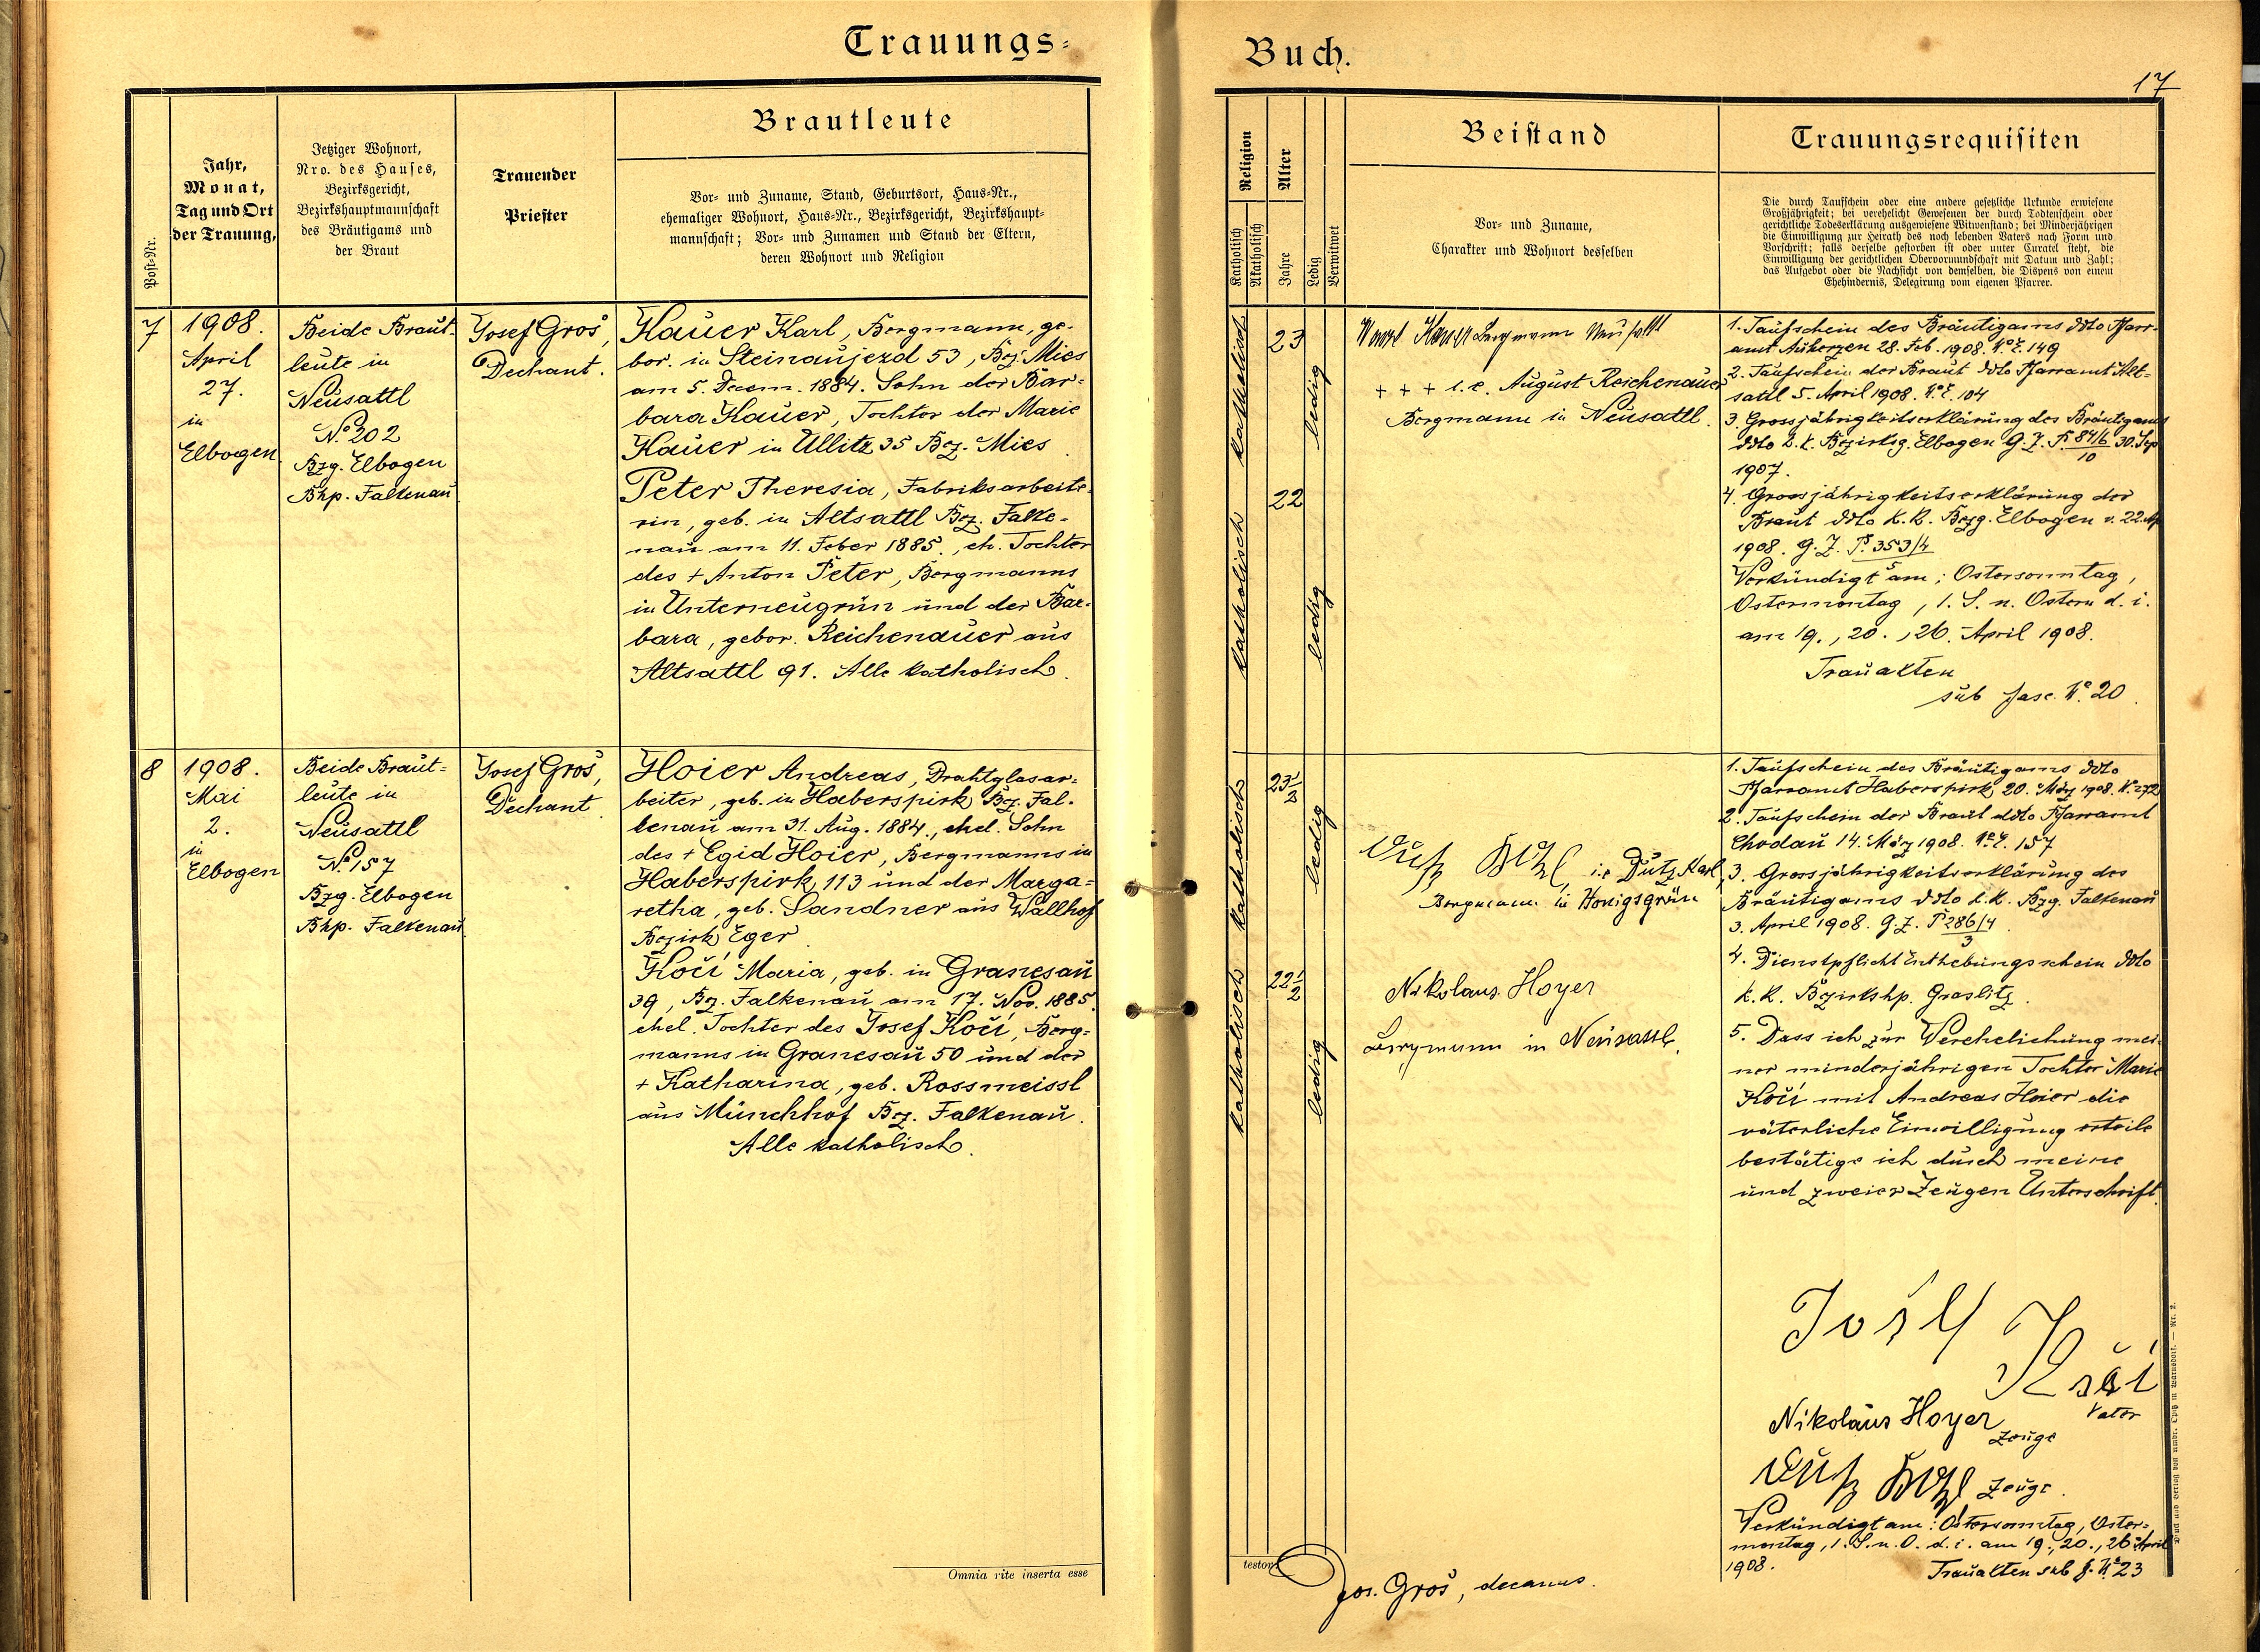 Trauungs-
Post-Nr.
Jahr,
Monat,
Tag und Ort
der Trauung,
Jetziger Wohnort,
Nro. des Hauses,
Bezirksgericht,
Bezirkshauptmannschaft
des Bräutigams und
der Braut
Trauender
Priester
Brautleute
Vor- und Zuname, Stand, Geburtsort, Haus-Nr.,
ehemaliger Wohnort, Haus-Nr., Bezirksgericht, Bezirkshaupt-
mannschaft; Vor- und Zunamen und Stand der Eltern,
deren Wohnort und Religion
7
1908.
April
27.
in
Elbogen
Beide Braut-
leute in
Neusattl
No. 202
Bzg. Elbogen
Bhp. Falkenau
Josef Groš,
Dechant.
Hauer Karl, Bergmann, ge-
bor. in Steinaujezd 53, Bez. Mies
am 5. Decem. 1884. Sohn der Bar-
bara Hauer, Tochter der Marie
Hauer in Ullitz 35 Bez. Mies
Peter Theresia, Fabriksarbeite-
rin, geb. in Altsattl Bez. Falke-
nau am 11. Feber 1885., eh. Tochter
des + Anton Peter, Bergmanns
in Unterneugrün und der Bar-
bara, gebor. Reichenauer aus
Altsattl 91. Alle katholisch.
8
1908.
Mai
2.
in
Elbogen
Beide Braut-
leute in
Neusattl
No. 157
Bzg. Elbogen
Bhp. Falkenau
Josef Groš,
Dechant.
Hoier Andreas, Drahtglasar-
beiter, geb. in Haberspirk Bez. Fal-
kenau am 31. Aug. 1884., ehel. Sohn
des + Egid Hoier, Bergmanns in
Haberspirk 113 und der Marga-
retha, geb. Sandner aus Wallhof
Bezirk Eger.
Kočí Maria, geb. in Granesau
39, Bz. Falkenau am 17. Nov. 1885.
ehel. Tochter des Josef Kočí, Berg-
manns in Granesau 50 und der
+ Katharina, geb. Rossmeissl
aus Münchhof Bez. Falkenau.
Alle katholisch.
Omnia rite inserta esse
Buch.
17
Religion
Katholisch
Akatholisch
Alter
Jahre
Ledig
Verwitwet
Beistand
Vor- und Zuname,
Charakter und Wohnort desselben
Trauungsrequisiten
Die durch Taufschein oder eine andere gesetzliche Urkunde erwiesene
Großjährigkeit; bei verehelicht Gewesenen der durch Todtenschein oder
gerichtliche Todeserklärung ausgewiesene Witwenstand; bei Minderjährigen
die Einwilligung zur Heirath des noch lebenden Vaters nach Form und
Vorschrift; falls derselbe gestorben ist oder unter Curatel steht, die
Einwilligung der gerichtlichen Obervormundschaft mit Datum und Zahl;
das Aufgebot oder die Nachsicht von demselben, die Dispens von einem
Ehehindernis, Delegirung vom eigenen Pfarrer.
katholisch
23
ledig
katholisch
22
ledig
Hauer Bergmann Neusattl
+ + + i.e. August Reichenauer
Bergmann in Neusattl.
1. Taufschein des Bräutigams ddto Pfarr-
amt Auherzen 28. Feb. 1908. No. E. 149
2. Taufschein der Braut ddto Pfarramt Alt-
sattl 5. April 1908. No. E. 104
3. Grossjährigkeitserklärung des Bräutigams
ddto k. k. Bezirksg. Elbogen G. Z. P. 84/6 30. Sep
10
1907.
4. Grossjährigkeitserklärung der
Braut ddto k. k. Bezg. Elbogen v. 22. Ap
1908. G. Z. P. 353/4
5
Verkündigt am: Ostersonntag,
Ostermontag, 1. S. n. Ostern d. i.
am 19., 20., 26. April 1908.
Trauakten
sub Fasc. No. 20.
katholisch
23 1/2
ledig
katholisch
22 1/2
ledig
Dutz Karl i.e. Dutz Karl,
Bergmann in Honigsgrün
Nikolaus Hoyer
Bergmann in Neusattl.
1. Taufschein des Bräutigams ddto
Pfarramt Haberspirk 20. März 1908. N. 272
2. Taufschein der Braut ddto Pfarramt
Chodau 14. März 1908. No. E. 157
3. Grossjährigkeitserklärung des
Bräutigams ddto k. k. Bzg. Falkenau
3. April 1908. G. Z. P 286/4
3
4. Dienstpflicht Enthebungsschein ddto
k. k. Bezirkshp. Graslitz.
5. Dass ich zur Verehelichung mei-
ner minderjährigen Tochter Marie
Kočí mit Andreas Hoier die
väterliche Einwilligung erteile
bestätige ich durch meine
und zweier Zeugen Unterschrift.
Josef
Kočí
Vater
Nikolaus Hoyer
Zeuge
Dutz Karl Zeuge.
Verkündigt am: Ostersonntag, Oster-
montag, 1. S. n. O. d. i. am 19., 20., 26. April
1908.
Trauakten sub f. No. 23
testor
Jos. Groš, decanus.